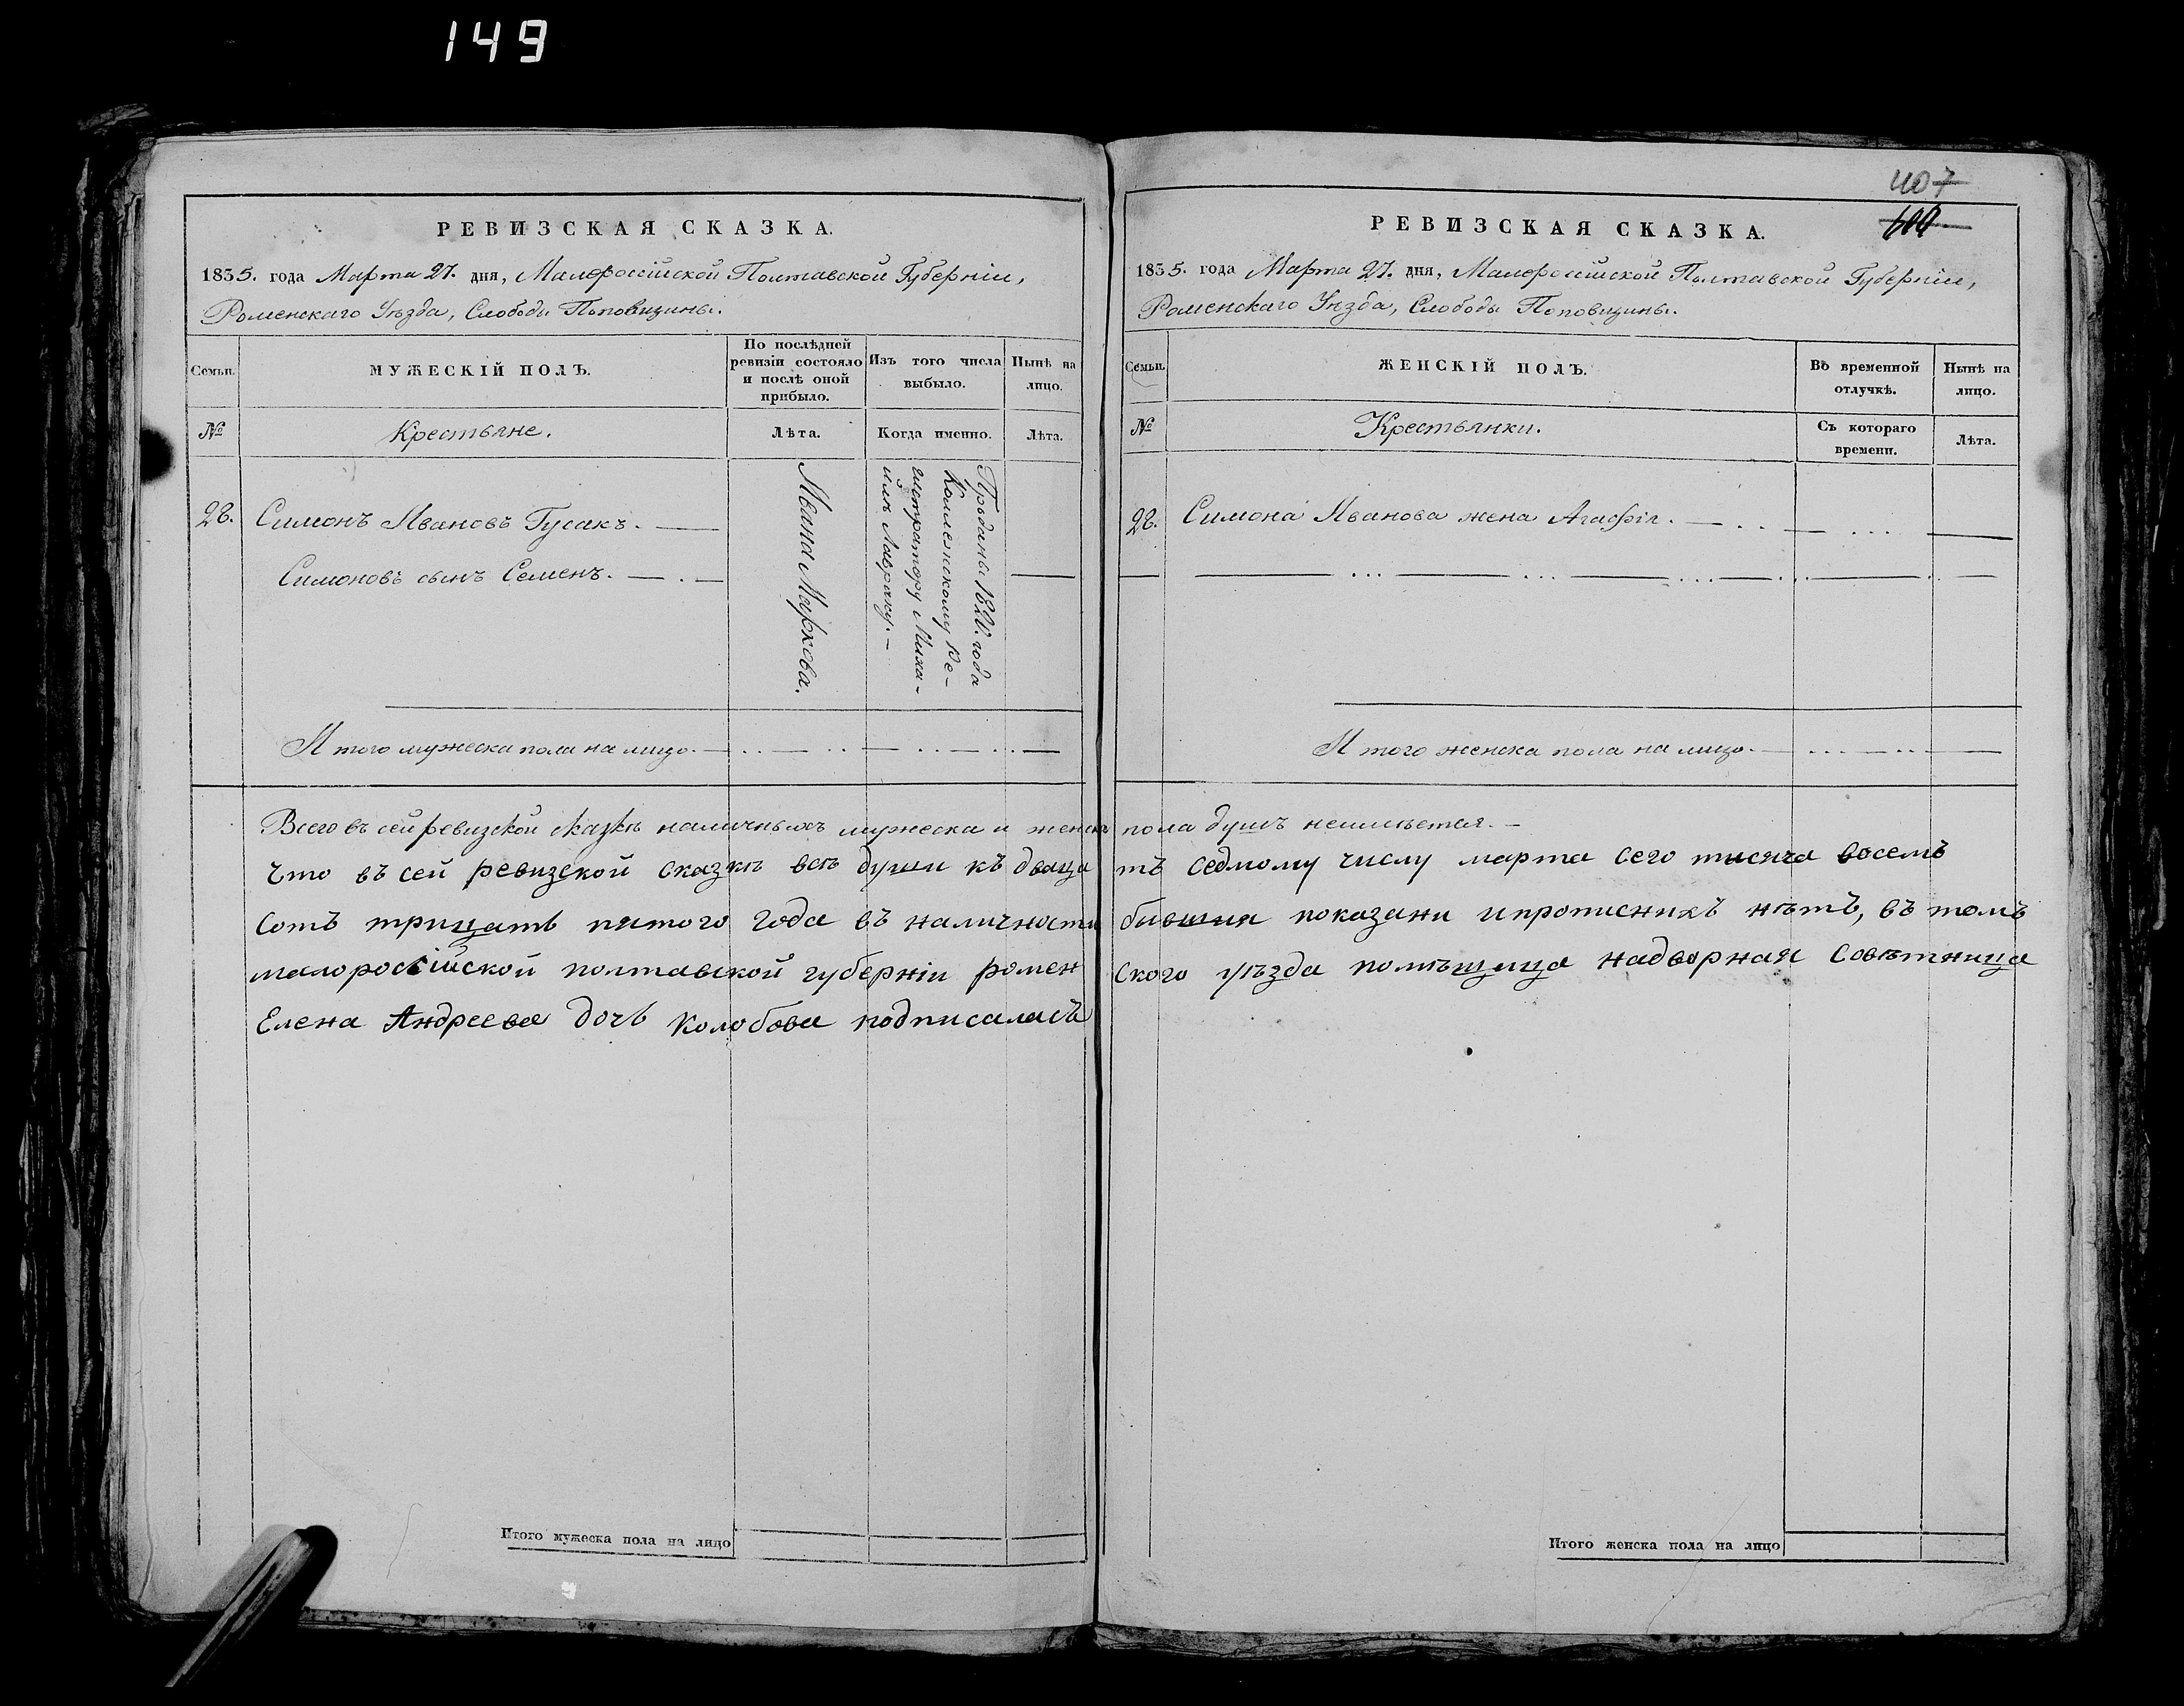 149
407
РЕВИЗСКАЯ СКАЗКА.
1835. года Марта 27. дня, Малороссійской Полтавской Губерніи,
Роменскаго Уѣзда, Слободы Поповщины.
Семьи.
МУЖЕСКІЙ ПОЛЪ.
По послѣдней
ревизіи состояло
и послѣ оной
прибыло.
Изъ того числа
выбыло.
Нынѣ на
лицо.
№
Крестьяне.
Лѣта.
Когда именно.
Лѣта.
28.
Симонъ Ивановъ Гусакъ.
Симоновъ сынъ Семенъ.
Ивана Маркова.
Проданы года
Коллежскому Ре-
гистратору Миха-
илѣ Лавраку.
Итого мужеска пола на лицо.
Всего въ сей ревизской сказкѣ наличныхъ мужеска и женска
Что въ сей ревизской сказкѣ всѣ души къ дваца
сотъ трицать пятого года въ наличности
малоросійской полтавской губерніи ромен
Елена Андреева дочь Колобова подписалась
Итого мужеска пола на лицо
РЕВИЗСКАЯ СКАЗКА.
1835. года Марта 27. дня, Малоросійской Полтавской Губерніи,
Роменскаго Уѣзда, Слободы Поповщины.
Семьи.
ЖЕНСКІЙ ПОЛЪ.
Въ временной
отлучкѣ.
Нынѣ на
лицо.
№
Крестьянки.
Съ котораго
времени.
Лѣта.
28.
Симона Иванова жена Агафія.
Итого женска пола на лицо.
пола душъ неимѣется.
тъ седмому числу марта сего тысяча восемъ
бывшия показани и прописнихъ нѣтъ, въ томъ
ского уѣзда помѣщица надворная Совѣтница
Итого женска пола на лицо